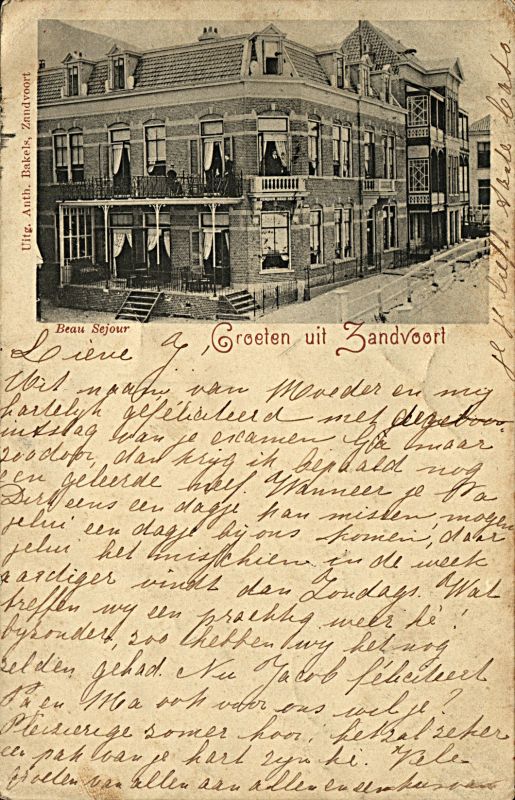 Uitg. Anth. Bakels, Zandvoort
Beau Sejour
Groeten uit Zandvoort
Lieve J,
Uit naam van Moeder en mij
hartelijk gefeliciteerd met de
uitslag van je examen Ga maar
zoodoor, dan krijg ik bepaald nog
een geleerde neef. Wanneer je Pa
Dirk eens een dagje kan missen, mogen
jelui een dagje bij ons komen, daar
jelui het misschien in de week
aardiger vindt dan Zondags. Wat
treffen wij een prachtig weer hè!
byzonder, zoo hebben wij het nog
zelden gehad. Nu Jacob féliciteert
Pa en Ma ook voor ons wil je?
Pleizierige zomer hoor, het zal zeker
een pak van je hart zijn hè. Vele
groeten van allen aan allen en een kus van
je je liefh